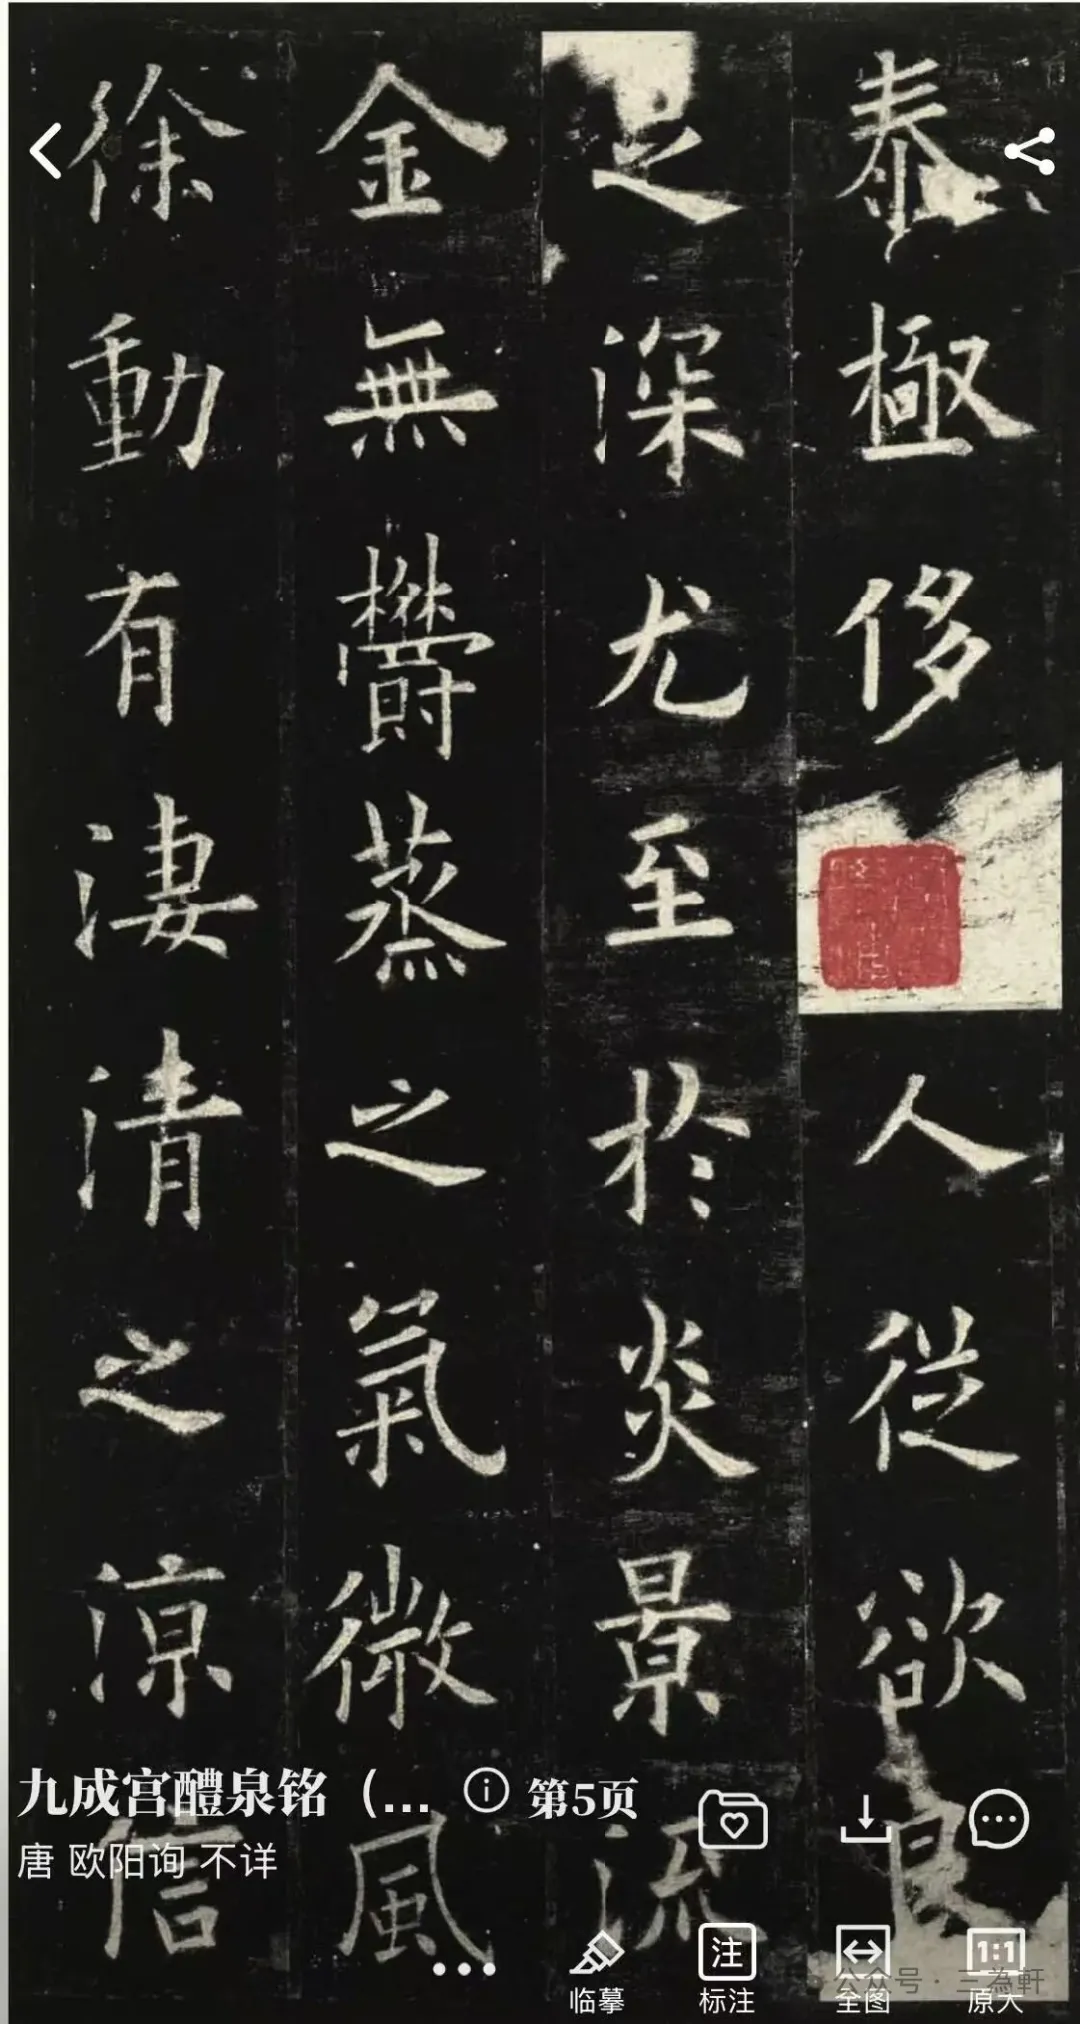 泰極侈人從欲良
之深尤至於炎景流
金無欝蒸之氣微風
徐動有淒清之涼信
九成宫醴泉铭（... 第5页
唐 欧阳询 不详
临摹 注 标注 全图 1:1 原大
公众号 · 三為軒